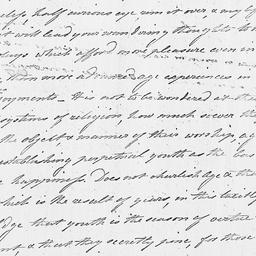 half curious eye, run it over, & may
it will lead your wondering thoughts to
which afford more pleasure even in
than more advanced age experiences in
joyments — it is not to be wondered at that
systems of religion, how much soever the
the object & manner of their worship, a
establishing perpetual youth as the
happiness. Does not churlish age &
which is the result of years, in this
dge that youth is the season of
& that they secretly pine, for those